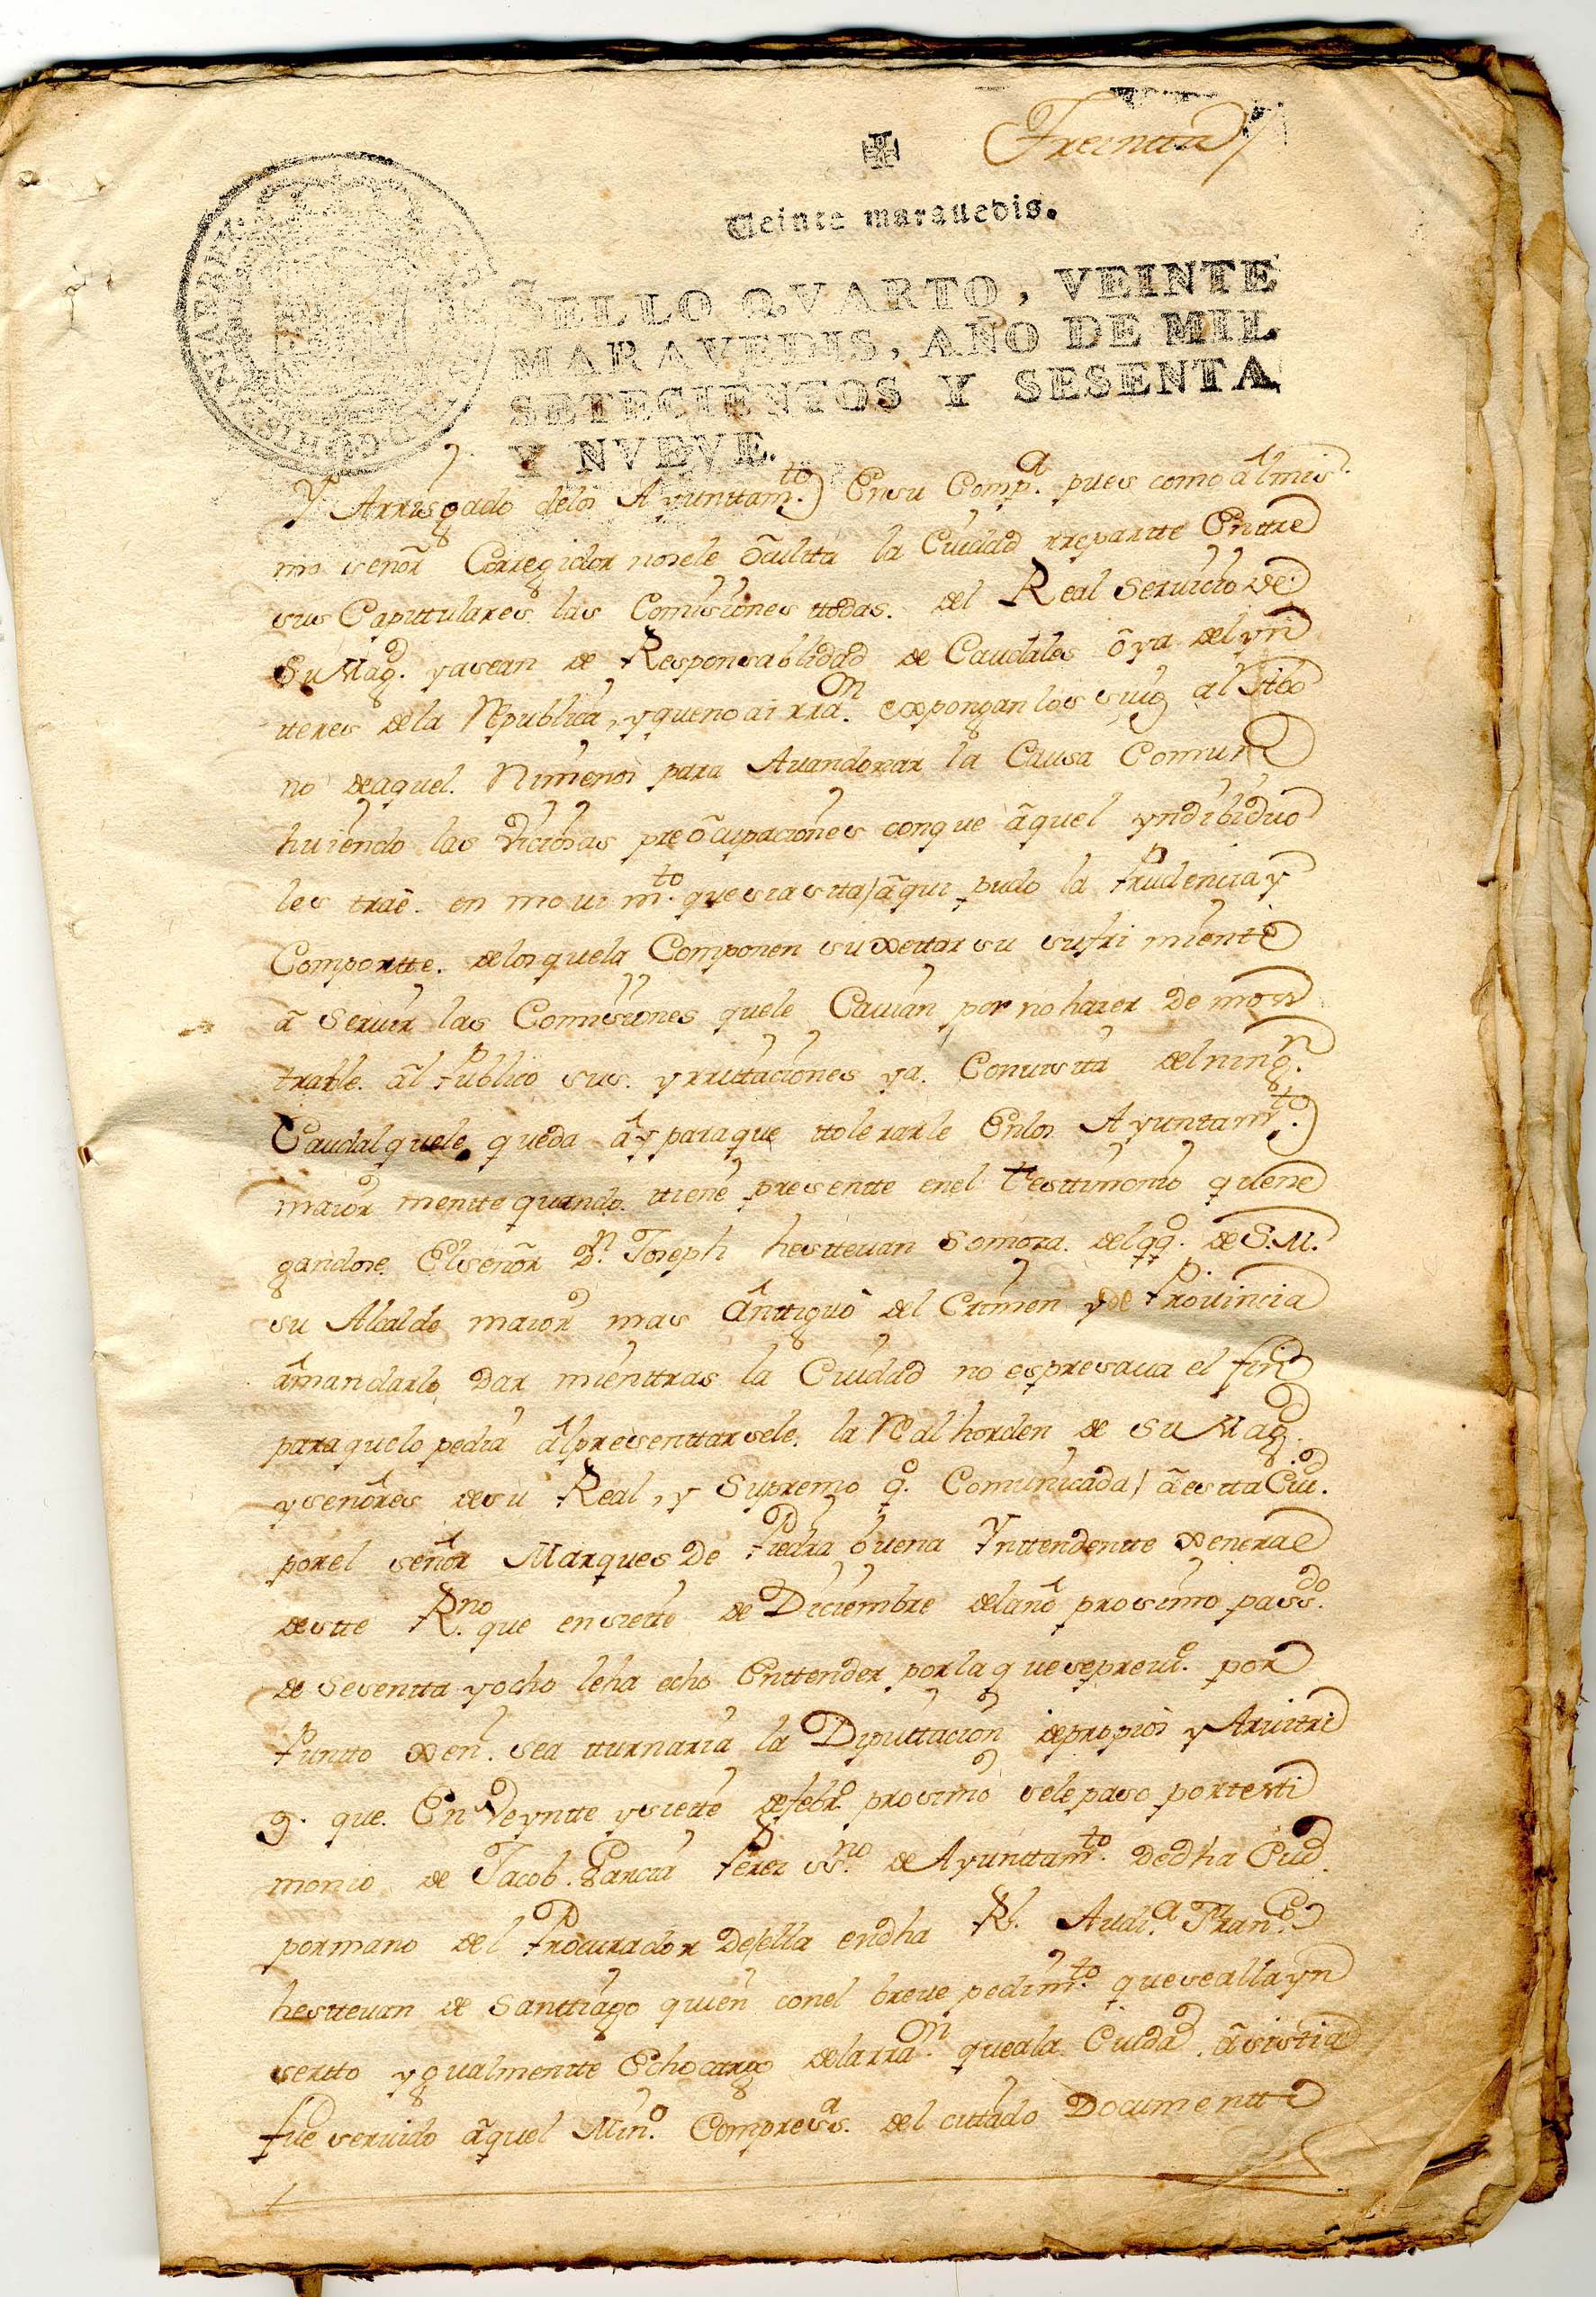 Treentta
Veinte marauedis.
SELLO QVARTO, VEINTE
MARAVEDIS, AÑO DE MIL
SETECIENTOS Y SESENTA
Y NVEVE.
Arrisgado delos Ayunttam.to) Ensu Comp.a pues como âl mis
mo señor Corregidor nosele ôculta la Ciudad rreparte Entre
sus Capittulares las Comisiones ttodas. del Real Seruicio de
Su Mag.d yasean de Responsablidad de Caudales ô ya del yn
tteres dela Republica, yquenoai rra.n expongan los suig al Abo
no deaquel. Nimenos para Auandonar la Causa Comun
huiendo las Viciosas preôcupaciones conque âquel yndibiduo
les traê. en moui m.to quesiasta/âqui pudo la Prudencia y
Comportte. delosquela Componen suxettar su sufri miento
â Seruir las Comisiones quele Cauian por no hazer De mos
trable. âl Publico sus. yrruttaciones ya. Conuista del ning.n
Caudalquele queda ây paraque ttolerarle Enlos Ayuntam.to)
maior mentte quando. ttiene presentte enel testtimonio quene
gandose Elseñor D.n Joseph hesttevan Somoza. delqq.o de S.M.
su Alcalde maior mas ânttiguo del Crimen y de Prouincia
âmandarlo Dar mienttras la Ciudad no espresaua el fin
paraquelo pedia âlpresenttarsele. la Real horden de Su Mag.d
yseñores desu Real, y Supremo q.o Comunicada/âestta Ciu.d
porel señor Marques De Piedra buena Ynttendentte xeneral
destte R.no que ensiette de Diciembre delaño prosimo pass.do
de Sesentta yocho leha echo Enttender porlaquesepreui.e por
Puntto xen.l sea tturnaria la Diputtacion depropios y Aruitri
g. que. En Veyntte ysiette defebr.o prosimo sele paso portesti
monio de Jacob. Garcia Perez ss.no de Ayunttam.to Dedha Ciud.
pormano del Procurador Desella endha Rl. Audi.a Fran.co
hesttevan de Santtiago quien conel breue pedim.to quesealla yn
sertto ygualmentte Echocargo delarra.n queala Ciudad âsistia
fue seruido âquel Min.o Compress.a del cittado Documentto